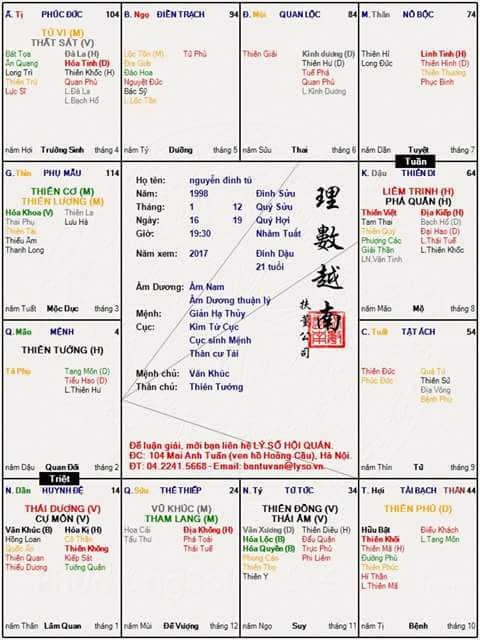 Ă. Tị PHÚC ĐỨC 104
TỬ VI (M)
THẤT SÁT (V)
Bát Tọa Đà La (H)
Ân Quang Hỏa Tinh (D)
Long Trì Thiên Khốc (H)
Thiên Trù Quan Phù
Lực Sĩ L.Đà La
L.Bạch Hổ
năm Hợi Trường Sinh tháng 4
B. Ngọ ĐIỀN TRẠCH 94
Lộc Tồn (M) Tử Phù
Địa Giải
Đào Hoa
Nguyệt Đức
Bác Sỹ
L.Lộc Tồn
năm Tý Dưỡng tháng 5
Đ. Mùi QUAN LỘC 84
Thiên Giải Kình dương (D)
Thiên Hư (D)
Tuế Phá
Quan Phủ
L.Kình Dương
năm Sửu Thai tháng 6
M. Thân NÔ BỘC 74
Thiên Hỉ Linh Tinh (H)
Long Đức Thiên Hình (D)
Thiên Thương
Phục Binh
năm Dần Tuyệt tháng 7
Tuần
G. Thìn PHỤ MẪU 114
THIÊN CƠ (M)
THIÊN LƯƠNG (M)
Hóa Khoa (V) Thiên La
Thai Phụ Lưu Hà
Thiên Tài
Thiếu Âm
Thanh Long
năm Tuất Mộc Dục tháng 3
Họ tên: nguyễn đình tú
Năm: 1998 Đinh Sửu
Tháng: 1 12 Quý Sửu
Ngày: 16 19 Quý Hợi
Giờ: 19:30 Nhâm Tuất
Năm xem: 2017 Đinh Dậu
21 tuổi
Âm Dương: Âm Nam
Âm Dương thuận lý
Mệnh: Giản Hạ Thủy
Cục: Kim Tứ Cục
Cục sinh Mệnh
Thân cư Tài
Mệnh chủ: Văn Khúc
Thân chủ: Thiên Tướng
理數越南
扶董公司
Để luận giải, mời bạn liên hệ LÝ SỐ HỘI QUÁN.
ĐC: 104 Mai Anh Tuấn (ven hồ Hoàng Cầu), Hà Nội.
ĐT: 04.2241.5668 - Email: bantuvan@lyso.vn.
K. Dậu THIÊN DI 64
LIÊM TRINH (H)
PHÁ QUÂN (H)
Thiên Việt Địa Kiếp (H)
Tam Thai Bạch Hổ (D)
Thiên Quý Đại Hao (D)
Phượng Các L.Thái Tuế
Giải Thần L.Thiên Khốc
LN.Văn Tinh
năm Mão Mộ tháng 8
Q. Mão MỆNH 4
THIÊN TƯỚNG (H)
Tả Phụ Tang Môn (D)
Tiểu Hao (D)
L.Thiên Hư
năm Dậu Quan Đới tháng 2
Triệt
C. Tuất TẬT ÁCH 54
Thiên Đức Quả Tú
Phúc Đức Thiên Sứ
Địa Võng
Bệnh Phù
năm Thìn Tử tháng 9
N. Dần HUYNH ĐỆ 14
THÁI DƯƠNG (V)
CỰ MÔN (V)
Văn Khúc (B) Hóa Kị (H)
Hồng Loan Cô Thần
Quốc Ấn Thiên Không
Thiên Quan Kiếp Sát
Thiếu Dương Tướng Quân
năm Thân Lâm Quan tháng 1
Q. Sửu THÊ THIẾP 24
VŨ KHÚC (M)
THAM LANG (M)
Hoa Cái Địa Không (H)
Tấu Thư Phá Toái
Thái Tuế
năm Mùi Đế Vượng tháng 12
N. Tý TỬ TỨC 34
THIÊN ĐỒNG (V)
THÁI ÂM (V)
Văn Xương (D) Thiên Diêu (H)
Hóa Lộc (B) Đẩu Quân
Hóa Quyền (B) Trực Phù
Phong Cáo Phi Liêm
Thiên Thọ
Thiên Y
năm Ngọ Suy tháng 11
T. Hợi TÀI BẠCH THÂN 44
THIÊN PHỦ (D)
Hữu Bật Điếu Khách
Thiên Khôi L.Tang Môn
Thiên Mã (H)
Đường Phù
Thiên Phúc
Hỉ Thần
L.Thiên Mã
năm Tị Bệnh tháng 10